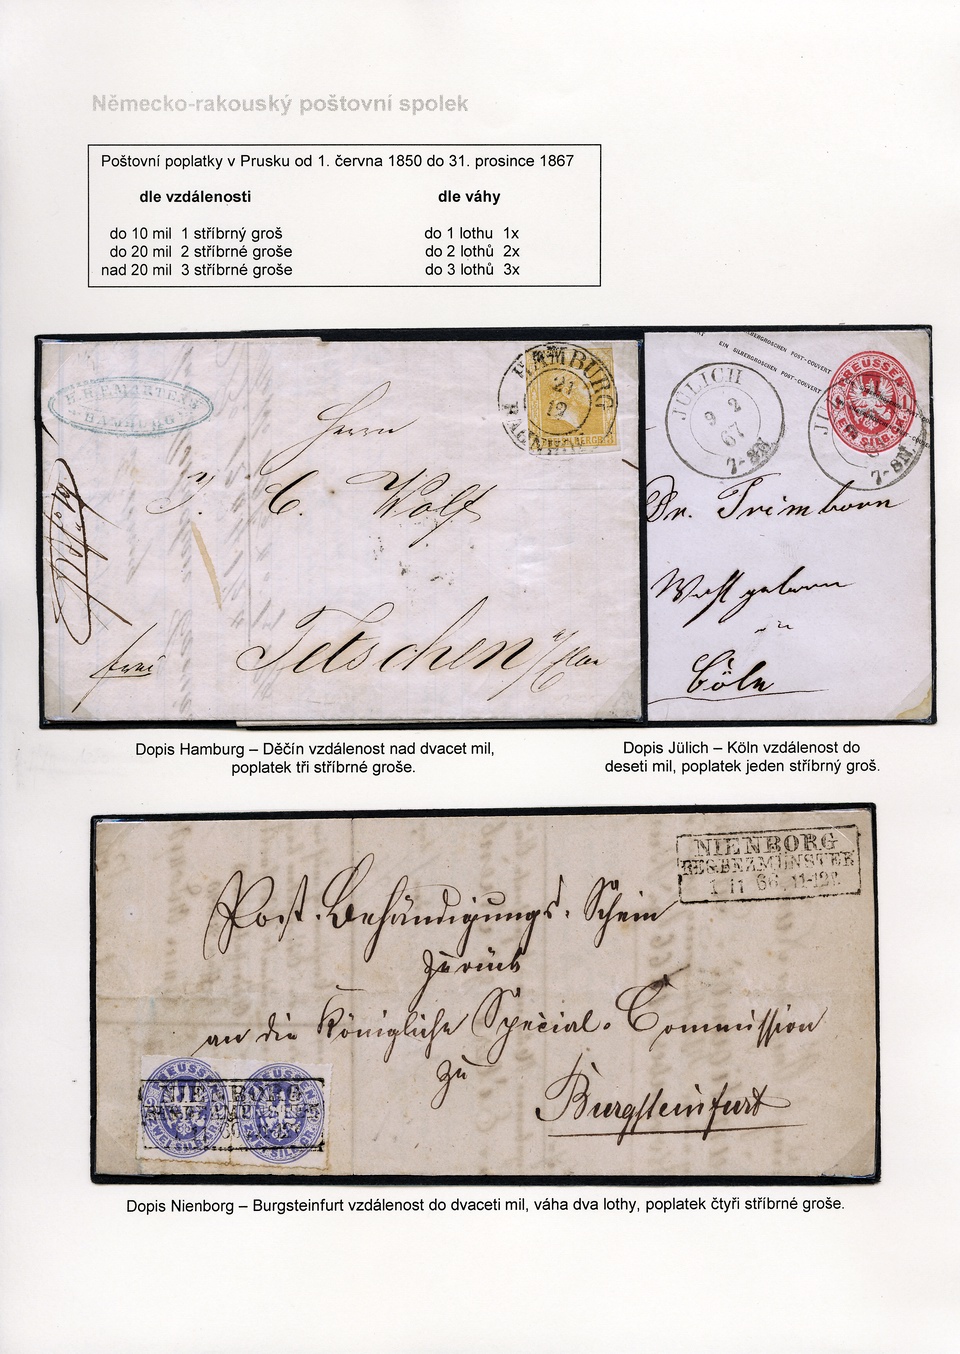 Německo-rakouský poštovní spolek
Poštovní poplatky v Prusku od 1. června 1850 do 31. prosince 1867
dle vzdálenosti
dle váhy
do 10 mil 1 stříbrný groš
do 1 lothu 1x
do 20 mil 2 stříbrné groše
do 2 lothů 2x
nad 20 mil 3 stříbrné groše
do 3 lothů 3x
HAMBURG
HAMBURG
21
12
Herrn
J. C. Wolf
frei
Tetschen
EIN SILBERGROSCHEN POST-COUVERT
PREUSSEN
EIN SILB.GR.
JÜLICH
9 2
67
7-8N
7-8N
Dr. Trimborn
Wohlgeboren
in
Cöln
Dopis Hamburg – Děčín vzdálenost nad dvacet mil,
poplatek tři stříbrné groše.
Dopis Jülich – Köln vzdálenost do
deseti mil, poplatek jeden stříbrný groš.
NIENBORG
REG.BEZ.MÜNSTER
1 11 66 11-12V.
Post-Behändigungs-Schein
zurück
an die Königliche Special-Commission
zu
Burgsteinfurt
PREUSSEN
PREUSSEN
NIENBORG
Dopis Nienborg – Burgsteinfurt vzdálenost do dvaceti mil, váha dva lothy, poplatek čtyři stříbrné groše.